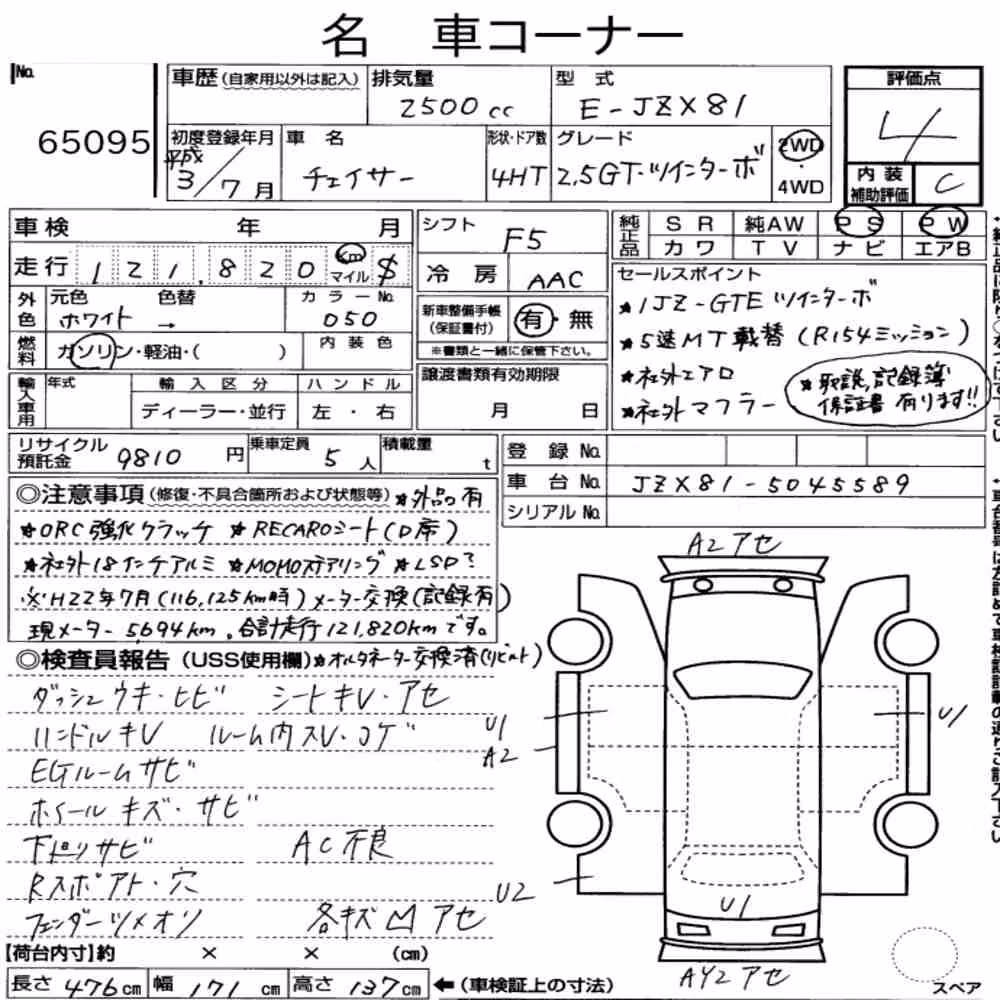 名 車コーナー
No. 65095
車歴 (自家用以外は記入)
排気量 2500cc
型式 E-JZX81
評価点 4
初度登録年月 平成 3/7月
車名 チェイサー
形状・ドア数 4HT
グレード 2.5GT・ツインターボ
2WD・4WD
内装補助評価 C
車検 年 月
シフト F5
純正品 SR 純AW PS PW
カワ TV ナビ エアB
走行 121,820 km マイル $
冷房 AAC
セールスポイント
★1JZ-GTE ツインターボ
★5速MT載替 (R154ミッション)
★社外エアロ
★社外マフラー
★取説,記録簿
保証書有ります!!
外色 元色 ホワイト → 色替 カラーNo. 050
新車整備手帳(保証書付) 有・無
※書類と一緒に保管下さい。
燃料 ガソリン・軽油・( ) 内装色
譲渡書類有効期限 月 日
輸入車用 年式 輸入区分 ハンドル
ディーラー・並行 左・右
リサイクル預託金 9810円
乗車定員 5人
積載量 t
登録 No.
車台 No. JZX81-5045589
シリアル No.
◎注意事項 (修復・不具合箇所および状態等) ★外品有
★ORC強化クラッチ ★RECAROシート(D席)
★社外18インチアルミ ★MOMOステアリング ★LSD?
※H22年7月(116,125km時)メーター交換(記録有)
現メーター5,694km。合計走行121,820kmです。
◎検査員報告 (USS使用欄) ★オルタネーター交換済(リビルト)
ダッシュウキ・ヒビ シートキレ・アセ
ハンドルキレ ルーム内スレ・コゲ
EGルームサビ
ホイールキズ・サビ
下廻リサビ AC不良
Rスポアト・穴
フェンダーツメオリ 各キズ凹アセ
【荷台内寸】約 × × (cm)
長さ 476cm 幅 171cm 高さ 137cm ←(車検証上の寸法)
A2アセ
U1
A2
U1
U2
U1
AY2アセ
スペア